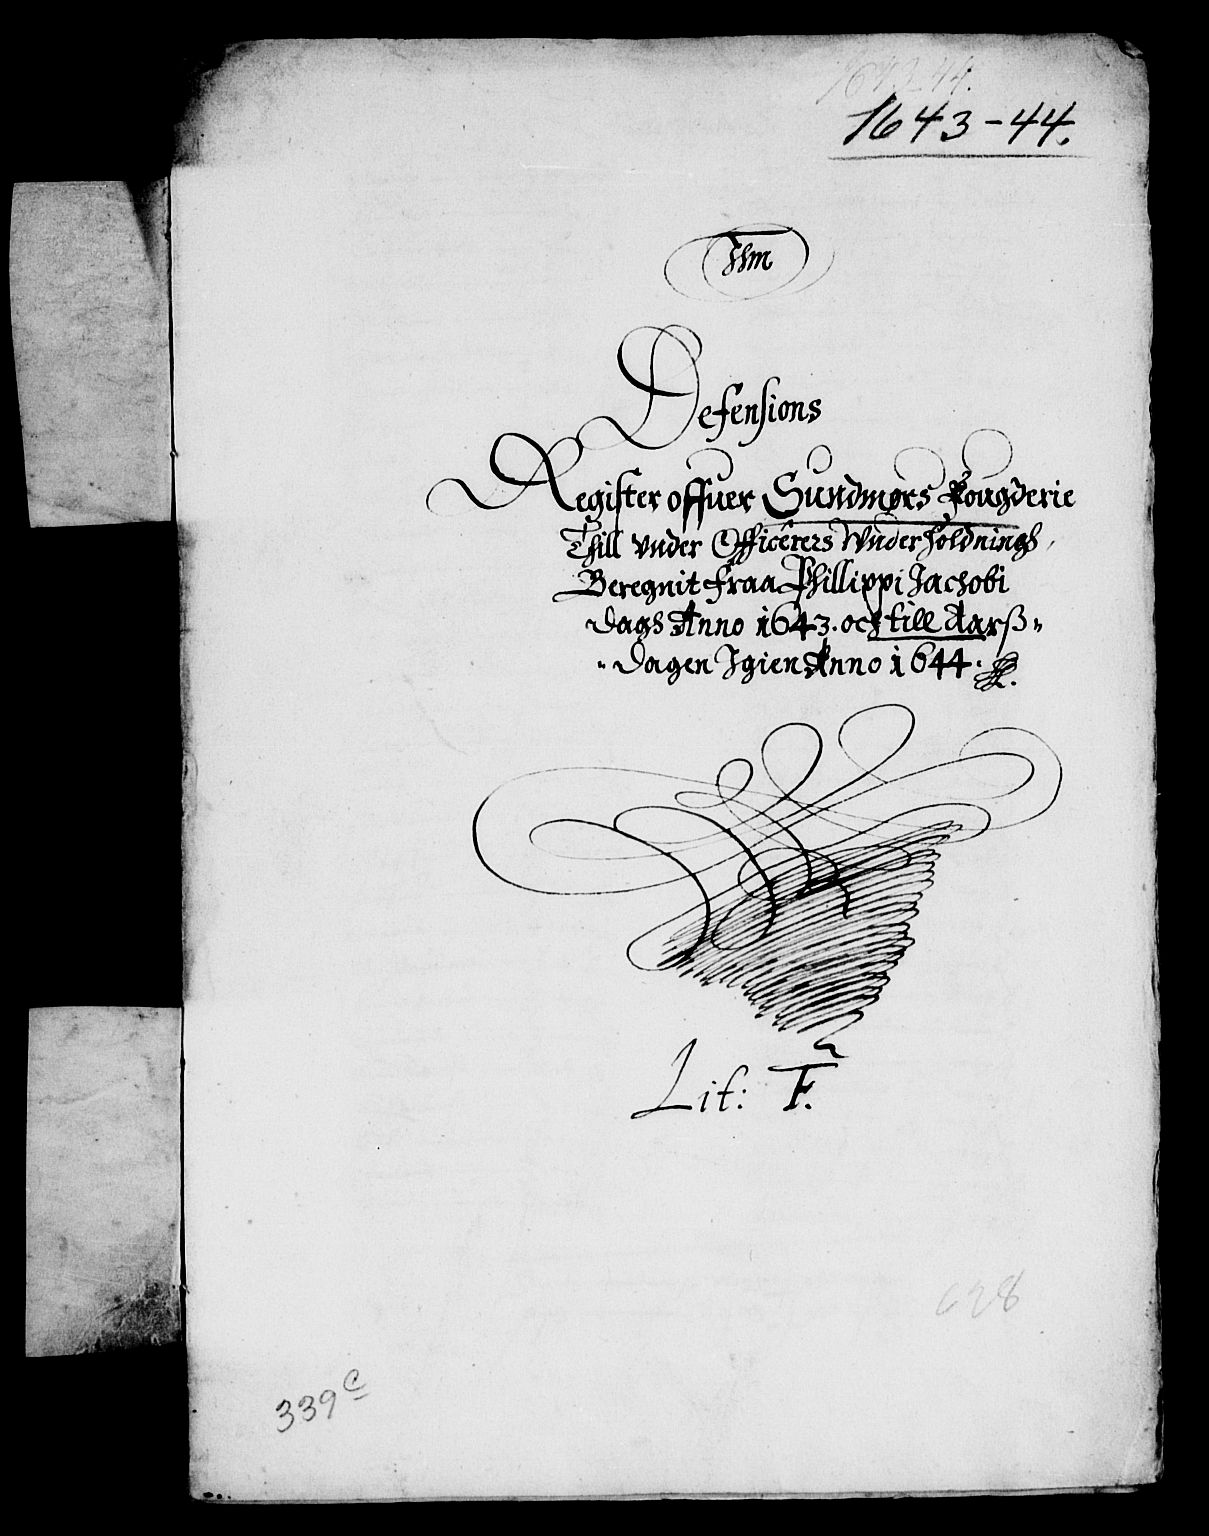 1643-44.
Defensions
Register offuer Sundmørs Fougderie
Thill Vnder Officerers Wnderholdningh,
Beregnit fraa Phillippi Jachobi
dagh Anno 1643. och till Aarß„
„dagen Igien Anno 1644.
Lit: F.
628
339 c